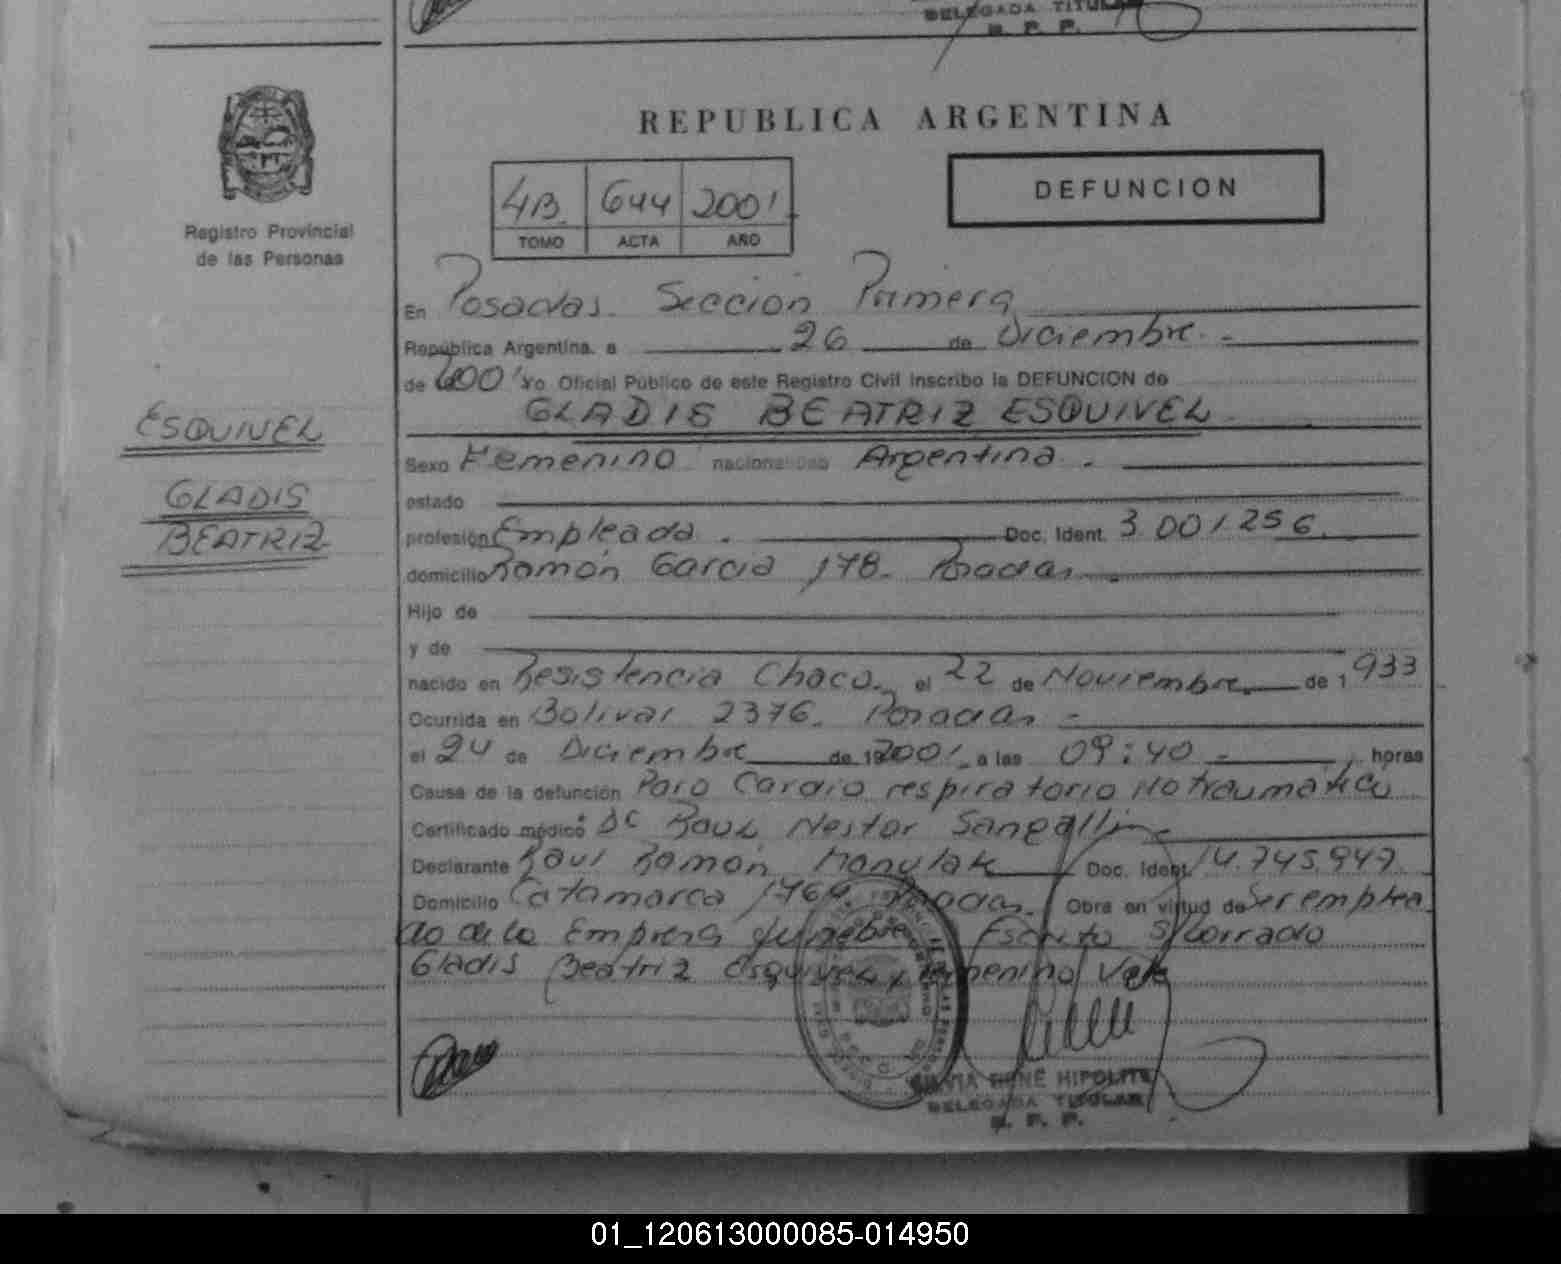 DELEGADA TITULAR
R. P. P.
REPUBLICA ARGENTINA
DEFUNCION
4B 644 2001
TOMO ACTA AÑO
Registro Provincial
de las Personas
En Posadas. Sección Primera
República Argentina, a 26 de Diciembre.-
de 2001 Yo Oficial Público de este Registro Civil Inscribo la DEFUNCION de
GLADIS BEATRIZ ESQUIVEL
ESQUIVEL
GLADIS
BEATRIZ
Sexo Femenino nacionalidad Argentina.
estado
profesión Empleada. Doc. Ident. 3.001.256.
domicilio Ramón Garcia 178. Posadas.
Hijo de
y de
nacido en Resistencia Chaco. el 22 de Noviembre. de 1933
Ocurrida en Bolivar 2376. Posadas -
el 24 de Diciembre de 2001. a las 09:40 - horas
Causa de la defunción Paro Cardio respiratorio No traumático
Certificado médico Dr Raul Nestor
Declarante Raul Ramón Doc. Ident. 14.745.947.
Domicilio Catamarca 1764 Posadas. Obra en virtud de Ser emplea
do de la Empresa fúnebre. Escrito s/borrado
Gladis Beatriz Esquivel, Femenino Vale
SILVIA RENE HIPOLITE
DELEGADA TITULAR
R. P. P.
01_120613000085-014950